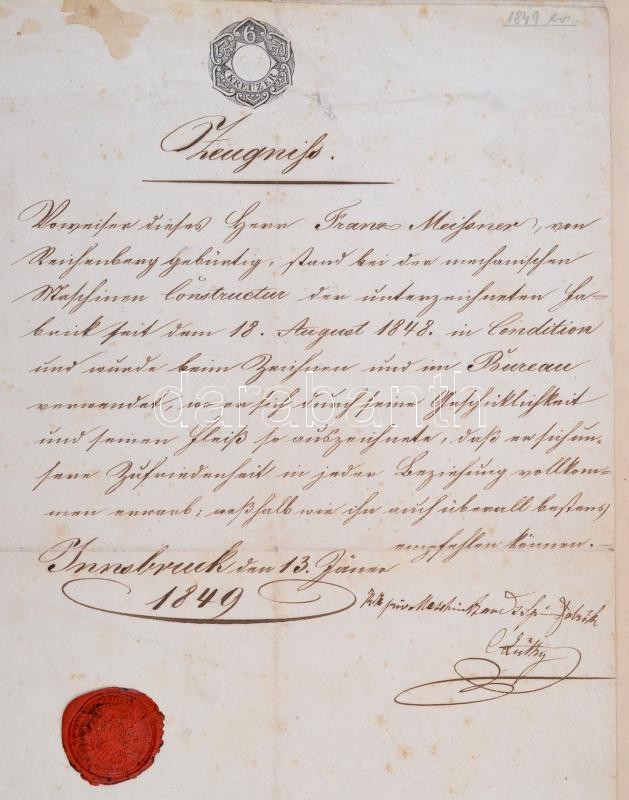 1849 ev.
6
KREUZER
Zeugniß.
Vorweiser dieses Herr Franz Meißner, von
Reichenberg gebürtig, stand bei der mechanischen
Maschinen Constructur der unterzeichneten Fa-
brick seit dem 18. August 1848. in Condition
und wurde beim Zeichnen und im Bureau
verwendet, wo er sich durch seine Geschiklichkeit
und seinen Fleiß so auszeichnete, daß er sich un-
sere Zufriedenheit in jeder Beziehung vollkom-
men erwarb; weßhalb wir ihn auch überall bestens
empfehlen können.
Innsbruck den 13. Jäner
1849
KK priv Maschin
darabanth